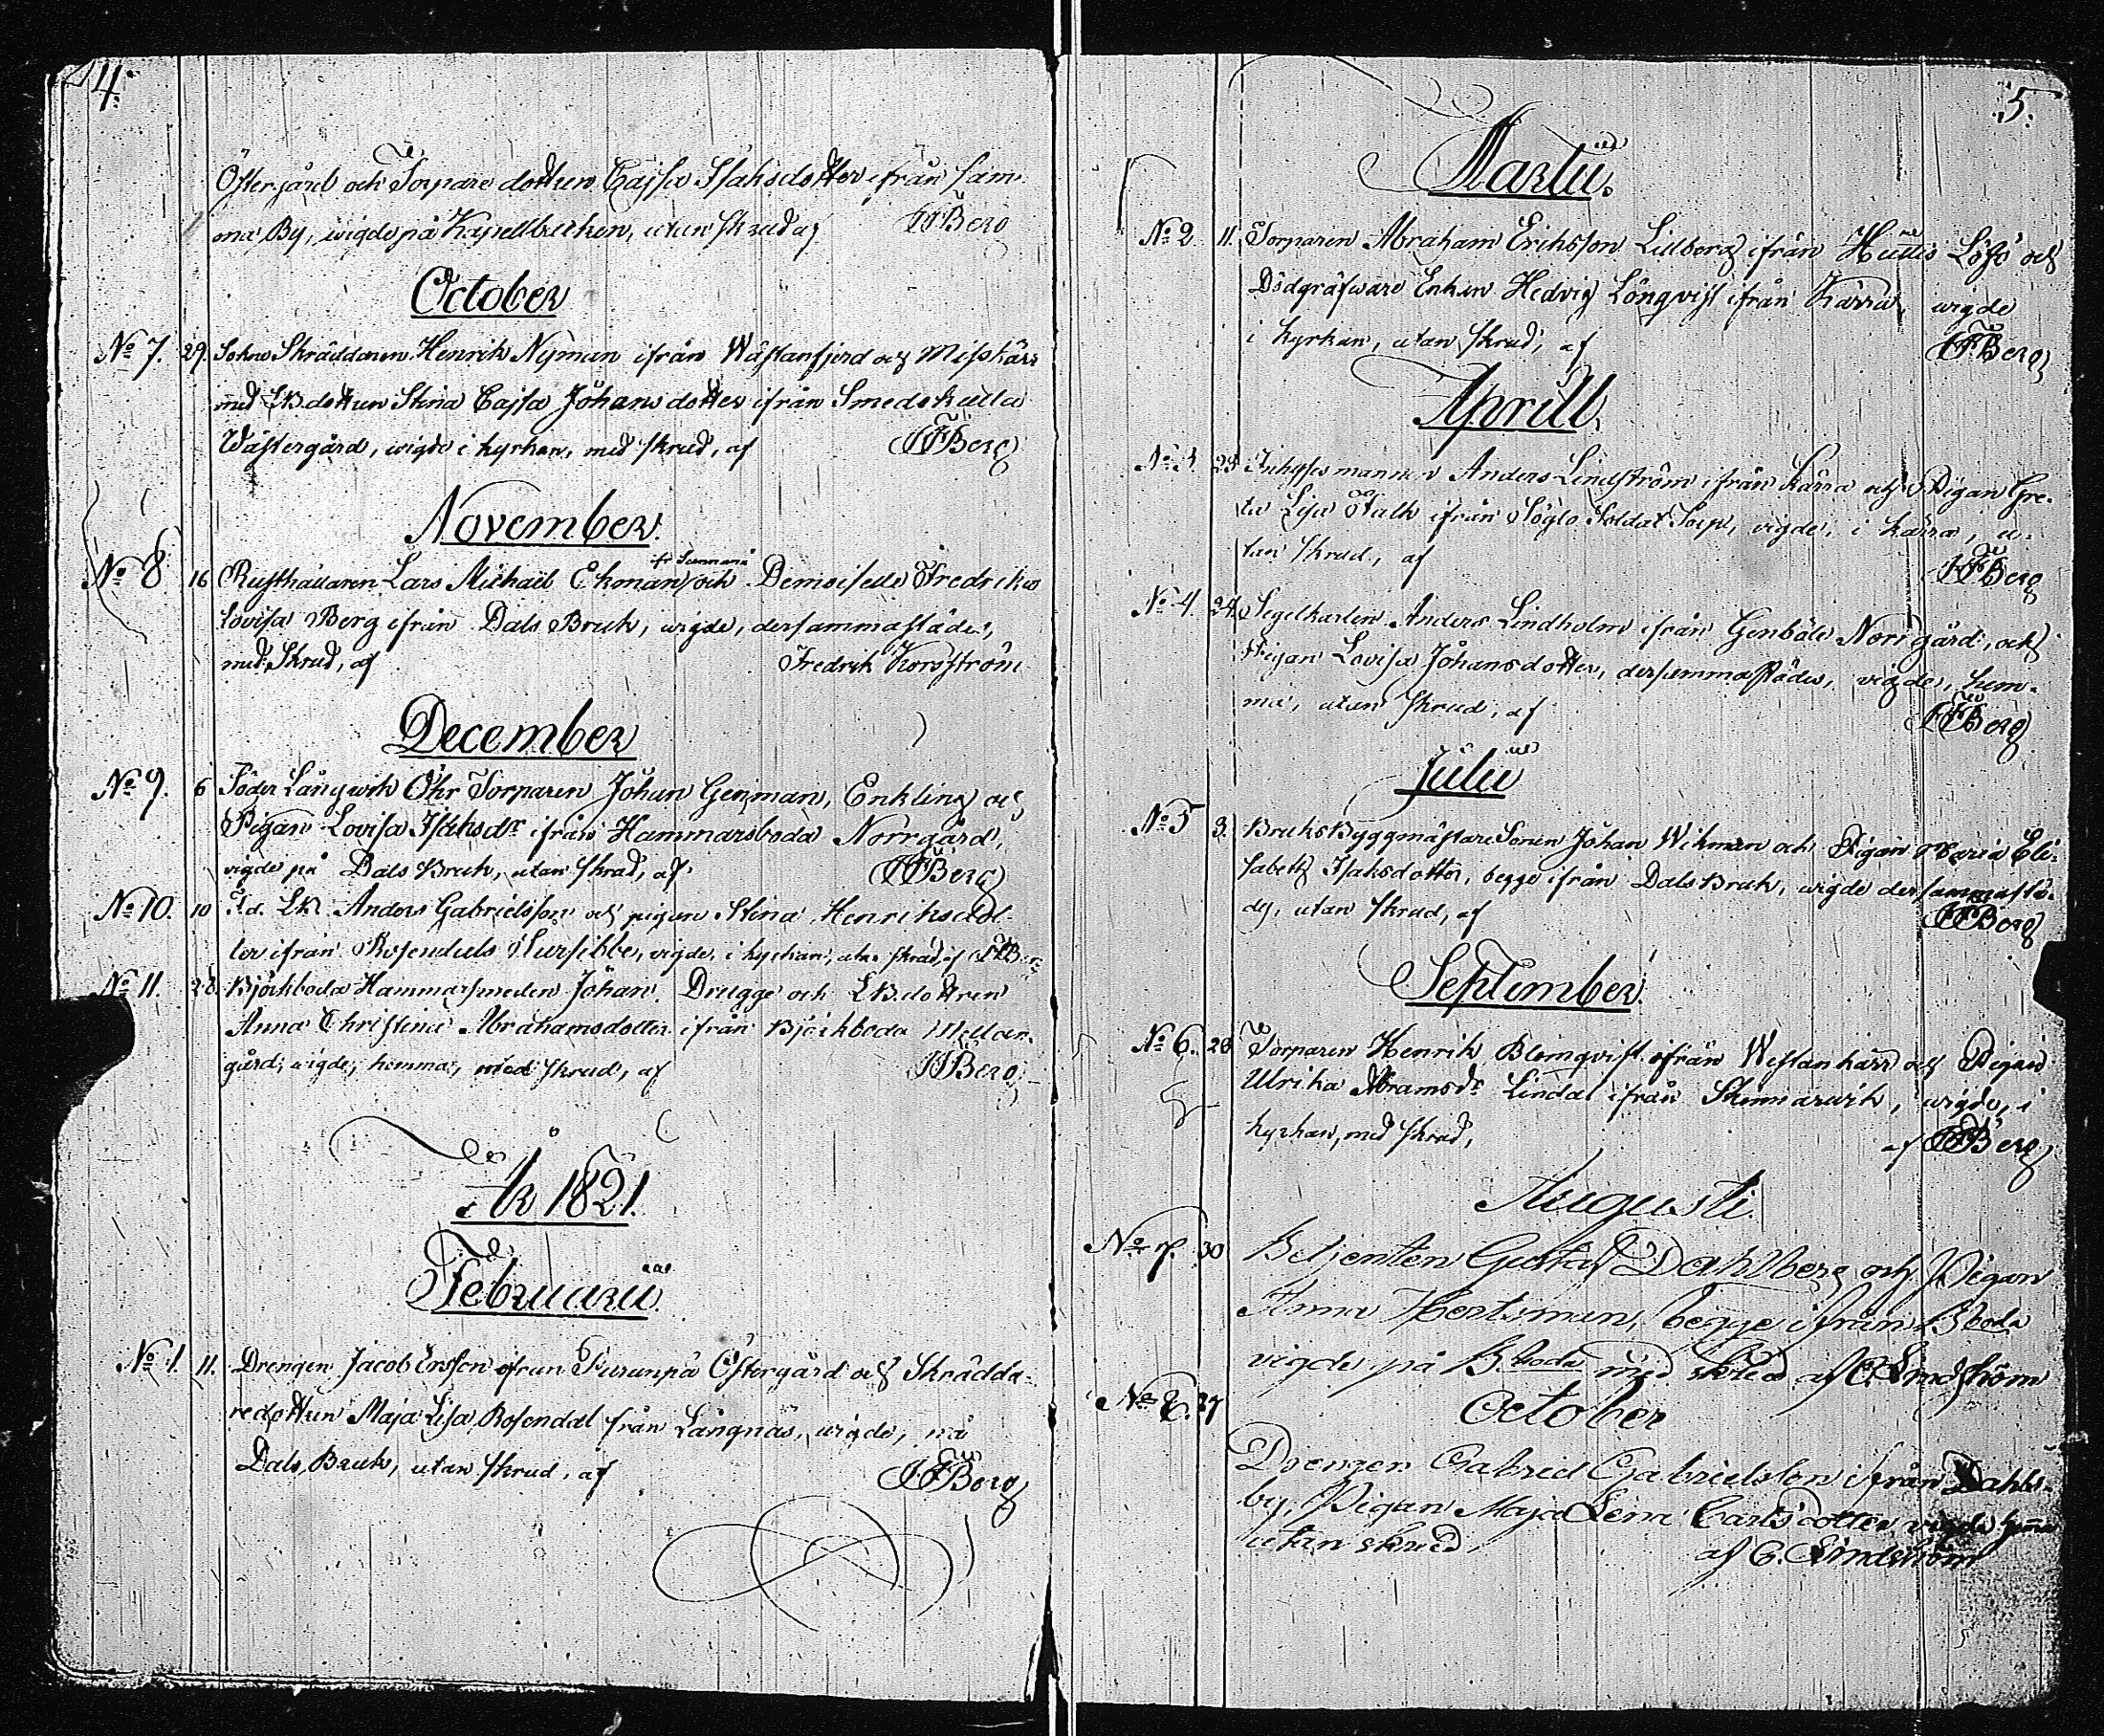 4.
Östergård och Torpare dottren Cajsa Isaksdotter ifrån sam-
ma By, wigde på Kapellbacken, utan skrud af JFBerg
October
No 7. 29. Sokne Skräddaren Henrik Nyman ifrån Wästanfjerd och Misskärr
med LB.dottren Stina Cajsa Johansdotter ifrån Smedskulla
Wästergård, wigde i kyrkan, med skrud, af JFBerg
November.
fr Sunnanå
No 8 16 Rusthållaren Lars Michaël Ekman och Demoiselle Fredrika
Lovisa Berg ifrån Dals Bruk, wigde, dersammastädes,
med Skrud, af Fredrik Kornström
December
No 9. 6 Söder Långwik Öhr Torparen Johan Genman, Enkling och
Pigan Lovisa Isaksdr ifrån Hammarsboda Norrgård,
vigde på Dals Bruk, utan skrud, af JFBerg
No 10. 10 F.d. LB. Anders Gabrielsson och pigan Stina Henriksdot-
ter ifrån Rosendals wigde, i kyrkan, utan skrud, af JFBerg
No 11. 28. Björkboda Hammarsmeden Johan Drugge och LB.dottren
Anna Christina Abrahamsdotter ifrån Björkboda Mellan-
gård, wigde, hemma, med skrud, af JFBerg
År 1821.
Februarii
No 1. 11. Drengen Jacob Ersson ifrån Östergård och Skrädda-
redottren Maja Lisa Rosendal från Långnäs, wigde, på
Dals Bruk, utan skrud, af JFBerg
5.
Martii.
No 2 11. Torparen Abraham Eriksson Lillberg ifrån Hiittis Löfö och
Dödgräfware Enkan Hedvig Lönqvist ifrån Kärra, wigde
i kyrkan, utan skrud, af JFBerg
Aprill
No 3 23 Inhysesmannen Anders Lindström ifrån Kärra och Pigan Gre-
ta Lisa Falk ifrån Söglo Soldat Torp, vigde, i Kärra, u-
tan skrud, af JFBerg
No 4. 24. Segelkarlen Anders Lindholm ifrån Genböle Norrgård, och
Pigan Lovisa Johansdotter, dersammastädes, vigde, hem-
ma, utan skrud, af JFBerg
Julii
No 5 3. Bruks Byggmästare Sonen Johan Wikman och Pigan Maria Eli-
sabeth Isaksdotter, begge ifrån Dals Bruk, wigde dersammastä-
des, utan skrud, af JFBerg
September.
No 6. 28 Torparen Henrik Blomqvist ifrån Westankärr och Pigan
Ulrika Abramsdr Lindal ifrån Skinnarwik, wigde, i
kyrkan, med skrud, af JFBerg
Augusti
No 7. 30 Betjenten Gustaf Dahlberg och Pigan
Anna Hertsman, begge ifrån B boda
vigde på B. boda med skrud af C. Lindström
No 8. 27 October
Drengen Gabriel Gabrielsson ifrån Dahls-
by, Pigan Maja Lena Carlsdotter vigde hema
utan skrud, af C. Lindström